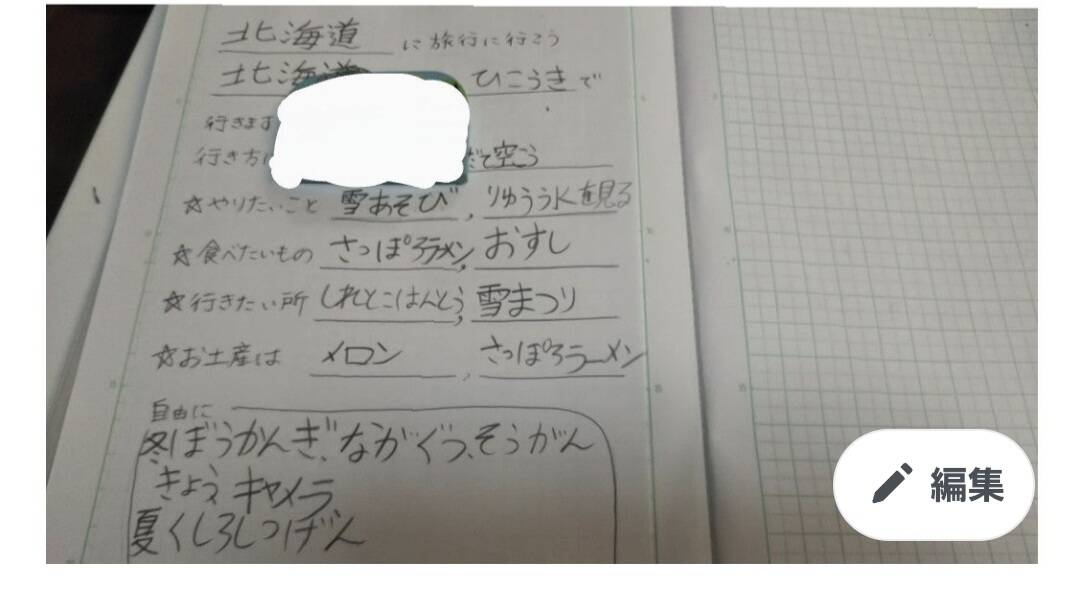 北海道に旅行に行こう
北海道 ひこうきで
行きます
行き方 空こう
☆やりたいこと 雪あそび, りゅううKを見る
☆食べたいもの さっぽろラメン, おすし
☆行きたい所 しれとこはんとう, 雪まつり
☆お土産は メロン, さっぽろラーメン
自由に
冬ぼうかんぎ、ながぐつ、そうがん
きょう、キャメラ
夏くしろしつげん
編集